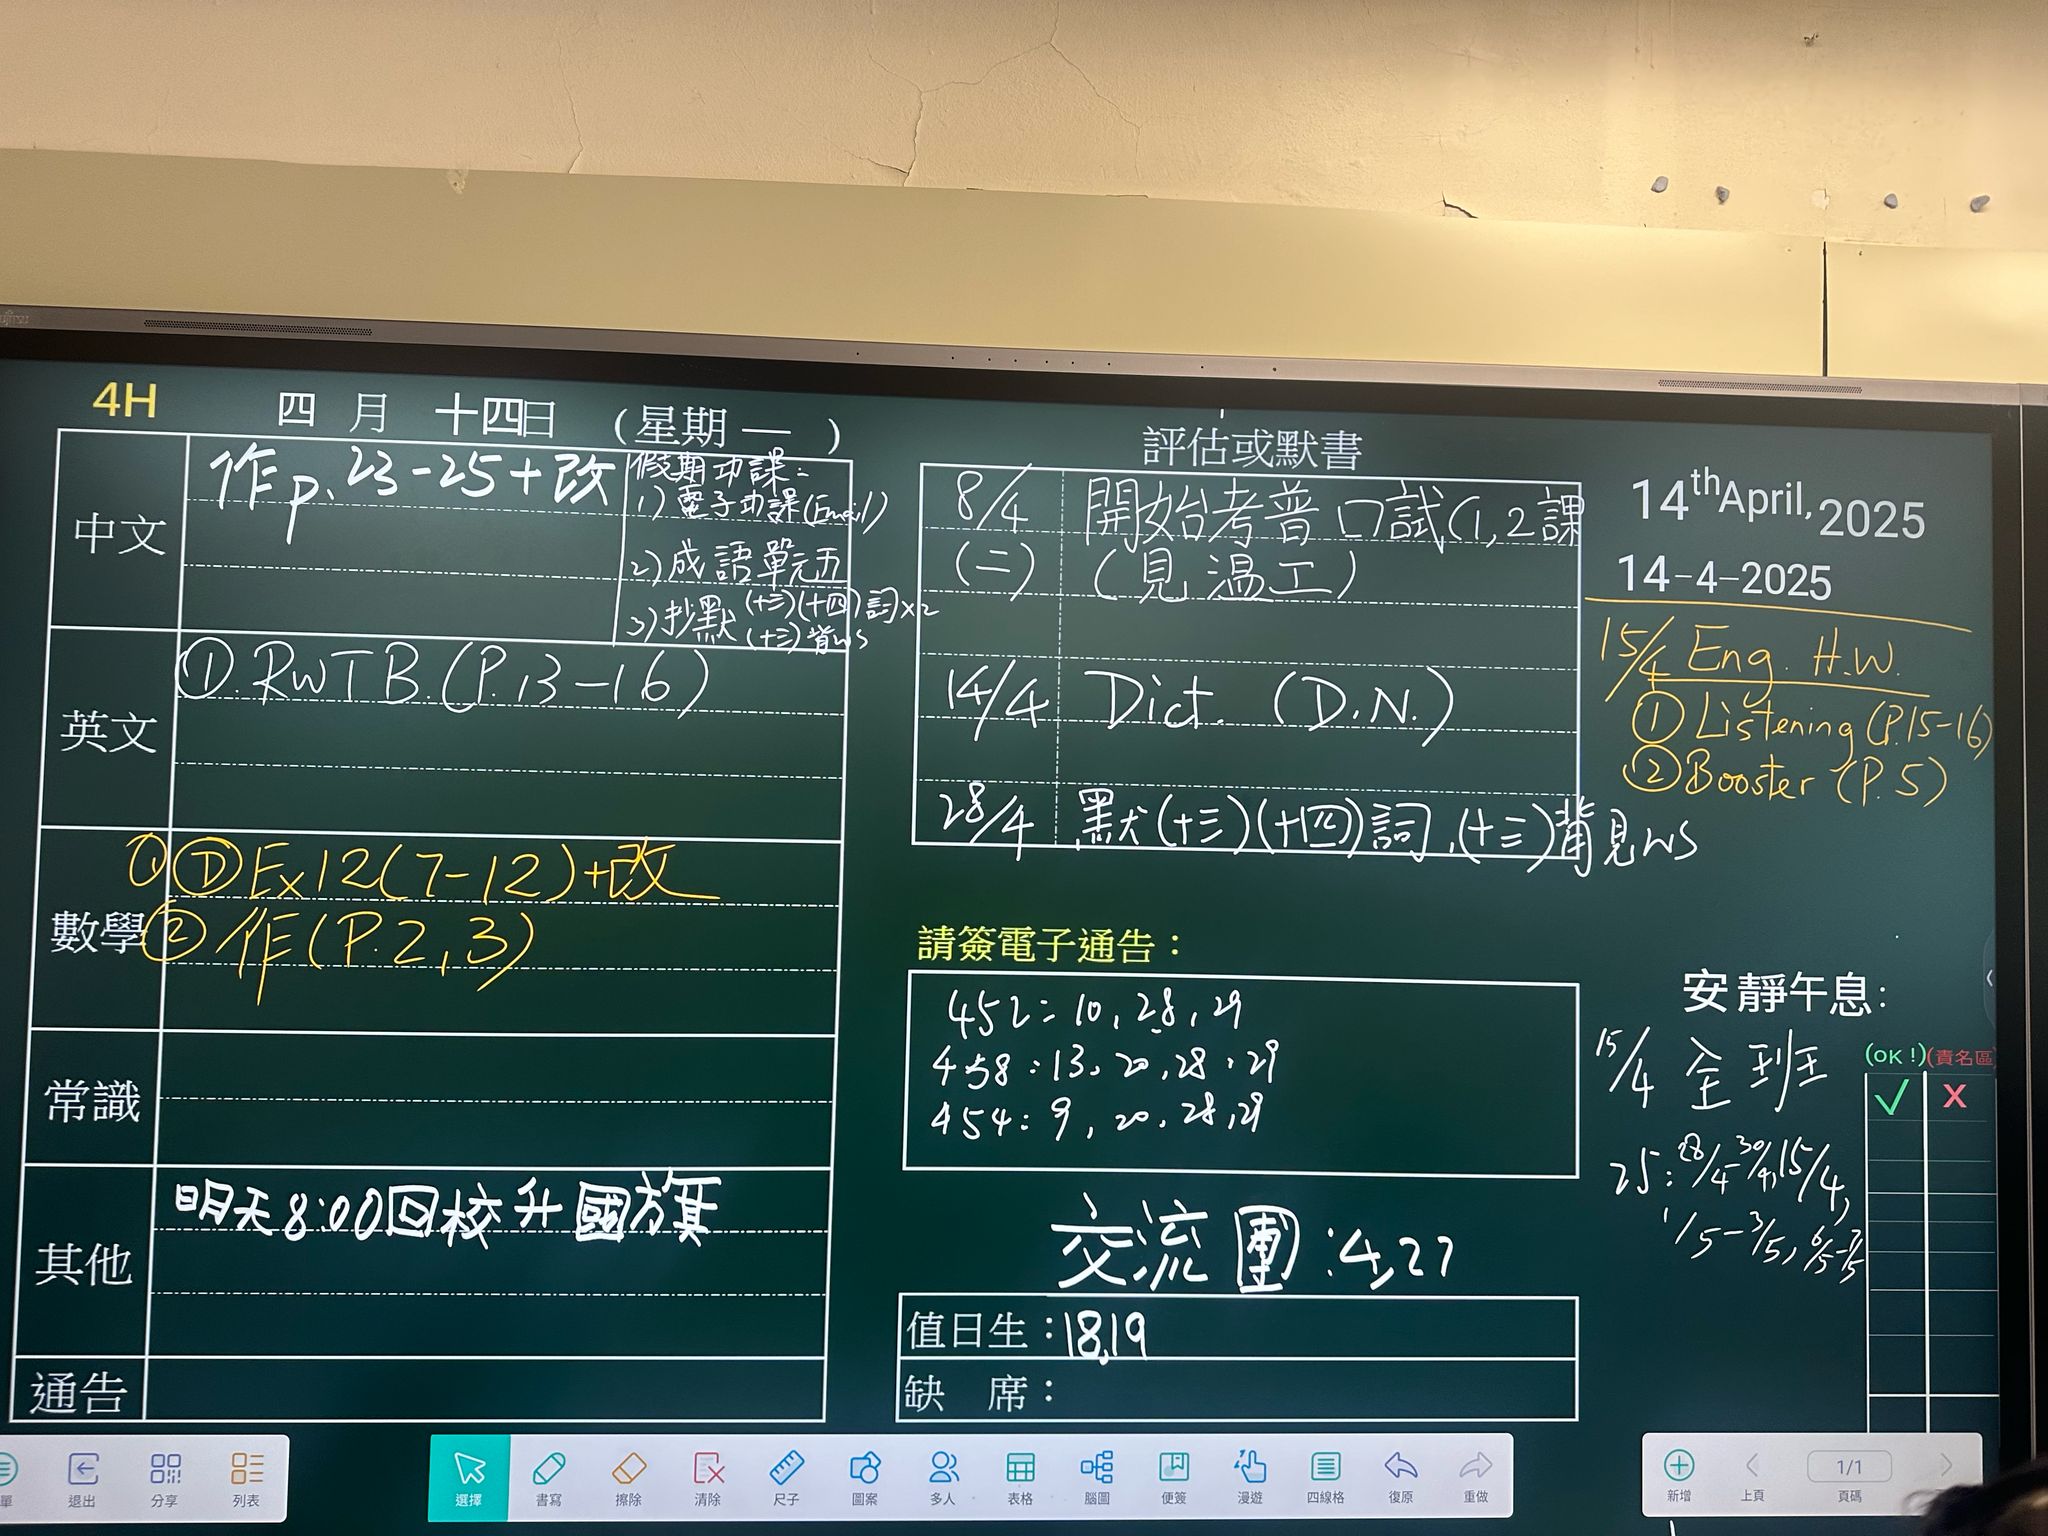 4H
四 月 十四日 (星期一 )
中文
作p.23-25+改
假期功課:
1)電子功課(Email)
2)成語單元五
3)抄默(十三)(十四)詞x2
(十三)背ws
英文
①.RWTB.(P.13-16)
數學
① Ⓓ Ex12(7-12)+改
② 作(P.2,3)
常識
其他
明天8:00回校升國旗
通告
評估或默書
8/4 開始考普口試(1,2課
(二) (見溫工)
14/4 Dict. (D.N.)
28/4 默(十三)(十四)詞,(十三)背見ws
請簽電子通告:
452: 10, 28, 29
458: 13, 20, 28, 29
454: 9, 20, 28, 29
交流團:4,27
值日生:18,19
缺 席:
14th April, 2025
14-4-2025
15/4 Eng. H.W.
① Listening (P.15-16)
② Booster (P.5)
安靜午息:
15/4 全班
(OK!) (責名區
✓ X
25: 28/4-30/4, 15/4,
1/5-3/5, 6/5-7/5
退出 分享 列表
選擇 書寫 擦除 清除 尺子 圖案 多人 表格 腦圖 便簽 漫遊 四線格 復原 重做
新增 上頁 1/1 頁碼